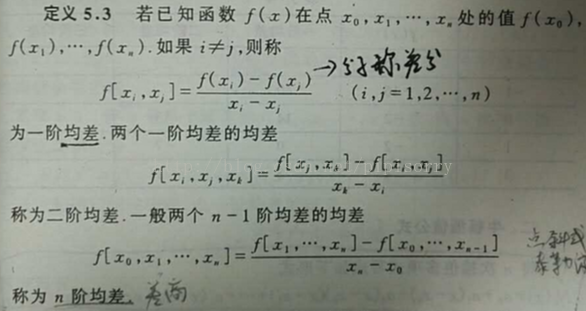 定义 5.3 若已知函数 f(x)在点 x₀,x₁,…,xₙ处的值 f(x₀),
f(x₁),…,f(xₙ).如果 i≠j,则称
f[xᵢ,xⱼ]=\frac{f(xᵢ)-f(xⱼ)}{xᵢ-xⱼ} →分子称差分 (i,j=1,2,…,n)
为一阶均差.两个一阶均差的均差
f[xᵢ,xⱼ,xₖ]=\frac{f[xⱼ,xₖ]-f[xᵢ,xⱼ]}{xₖ-xᵢ}
称为二阶均差.一般两个 n-1 阶均差的均差
f[x₀,x₁,…,xₙ]=\frac{f[x₁,…,xₙ]-f[x₀,…,xₙ₋₁]}{xₙ-x₀} 点斜式
称为 n 阶均差. 差商